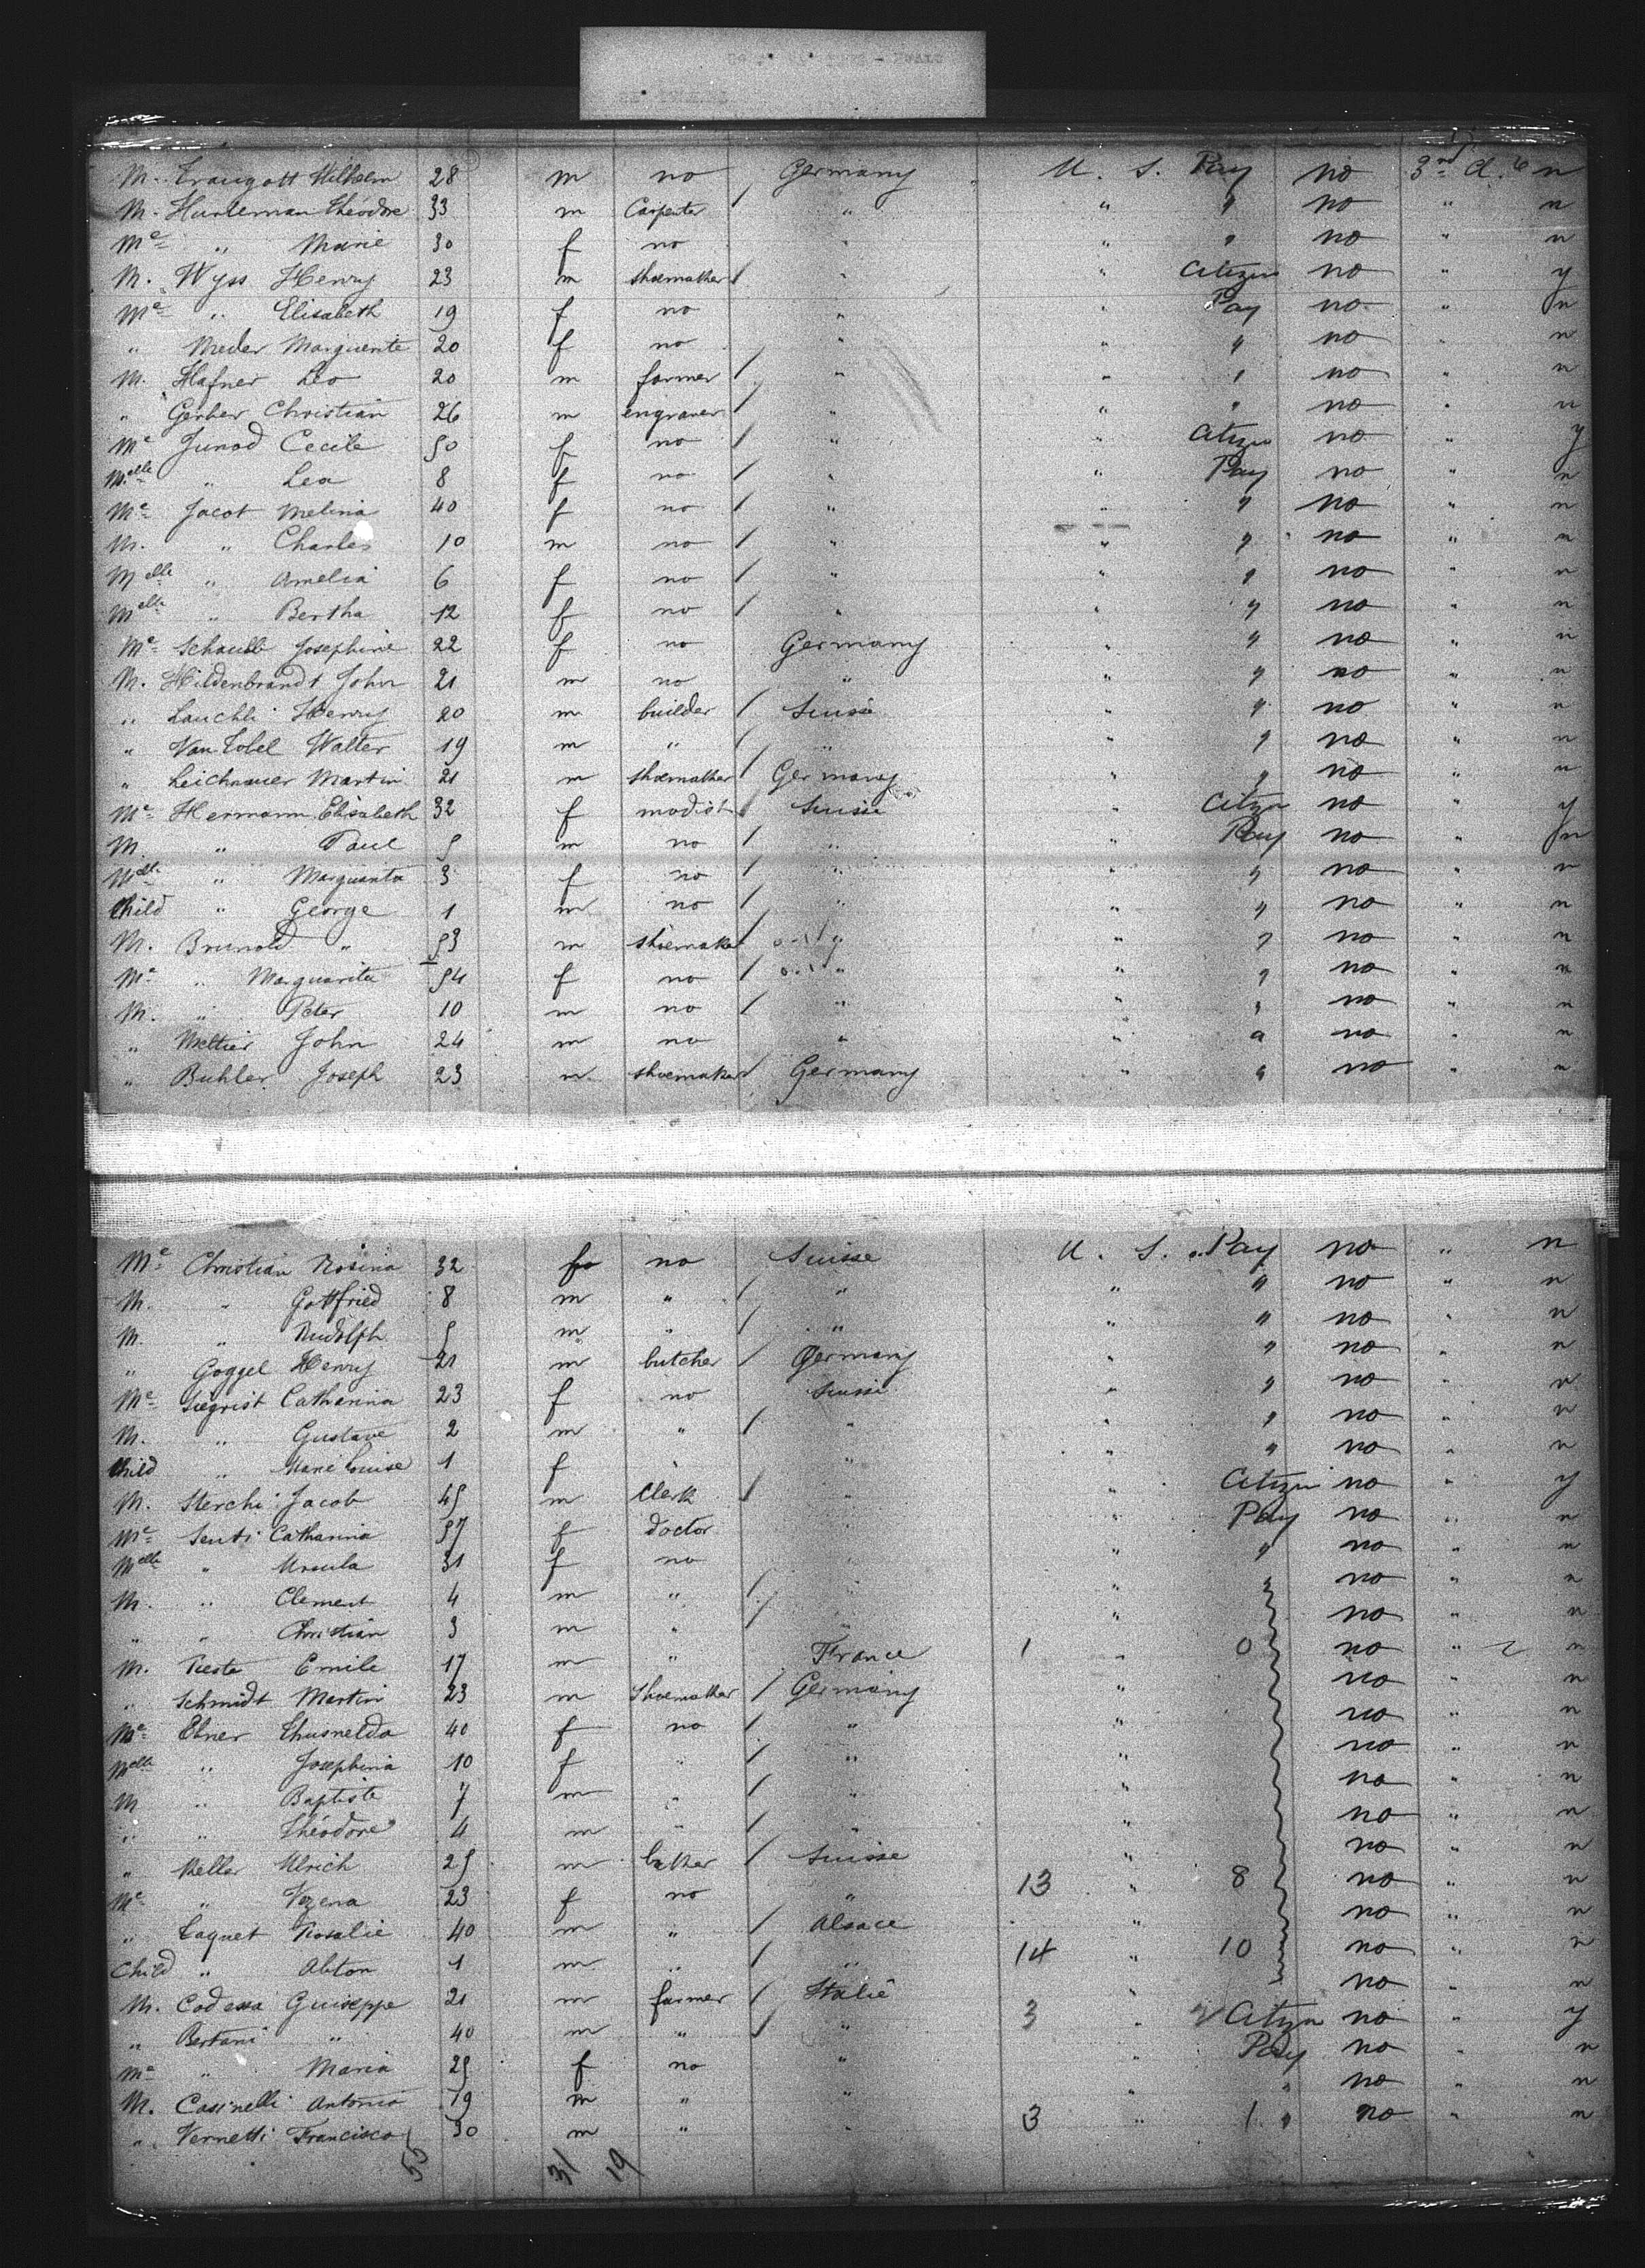 M. Traugott Wilhelm 28 m no Germany U. S. Pay no 3rd Cl. n
M. Theodore 33 m Carpenter / " " " no " n
Me " Marie 30 f no " " " no " n
M. Wyss Henry 23 m shoemaker / " " Citizen no " y
Me " Elisabeth 19 f no " " Pay no " n
" Meder Marguerite 20 f no " " " no " n
M. Hafner Leo 20 m farmer / " " " no " n
" Gerber Christian 26 m engraver / " " " no " n
Me Junod Cecile 50 f no / " " Citizen no " y
Melle " Lea 8 f no / " " Pay no " n
Me Jacot Melina 40 f no / " " " no " n
M. " Charles 10 m no / " " " no " n
Melle " Amelia 6 f no / " " " no " n
Melle " Bertha 12 f no / " " " no " n
Me Josephine 22 f no Germany " " no " n
M. Hildenbrandt John 21 m no " " " no " n
" Lauchli Henry 20 m builder / Suisse " " no " n
" Van Tobel Walter 19 m " / " " " no " n
" Martin 21 m shoemaker / Germany " " no " n
Me Hermann Elisabeth 32 f modist / Suisse " Citizn no " y
M. " Paul 5 m no / " " Pay no " n
Melle " Marguarita 3 f no / " " " no " n
Child " George 1 m no / " " " no " n
M. Brunold " 53 m shoemaker / " " " no " n
Me " Marguarita 54 f no / " " " no " n
M. " Peter 10 m no / " " " no " n
" John 24 m no " " " no " n
" Buhler Joseph 23 m shoemaker / Germany " " no " n
Me Christian Rosina 32 f no Suisse U. S. Pay no " n
M. " Gottfried 8 m " / " " " no " n
M. " Rudolph 5 m " / " " " no " n
" Goggel Henry 21 m butcher / Germany " " no " n
Me Siegrist Catharina 23 f no Suisse " " no " n
M. " Gustave 2 m " / " " " no " n
Child " Marie Louise 1 f " " " " no " n
M. Sterchi Jacob 45 m Clerk / " " Citizn no " y
Me Senti Catharina 57 f doctor " Pay no " n
Melle " Ursula 31 f no " " no " n
M. " Clement 4 m " / " " " no " n
" " Christian 3 m " / " no " n
M. Emile 17 m " France 1 " 0 no " n
" Schmidt Martin 23 m Shoemaker / Germany " no " n
Me Ebner Thusnelda 40 f no / " " no " n
Melle " Josephina 10 f " / " " no " n
M " Baptiste 7 m " / " " no " n
" " Théodore 4 m " / " " no " n
" Keller Ulrich 25 m baker / Suisse " no " n
Me " Verena 23 f no " 13 " 8 no " n
" Rosalie 40 m " / Alsace " no " n
Child " 1 m " / " 14 " 10 no " n
M. Guiseppe 21 m farmer / Italie " no " n
" Bertani " 40 m " / " 3 " Citzn no " y
Me " Maria 25 f no " " Pay no " n
M. Casinelli Antonio 19 m " " " " no " n
" Vernetti Francisco 30 m " " 3 " 1 " no " n
55 31 19